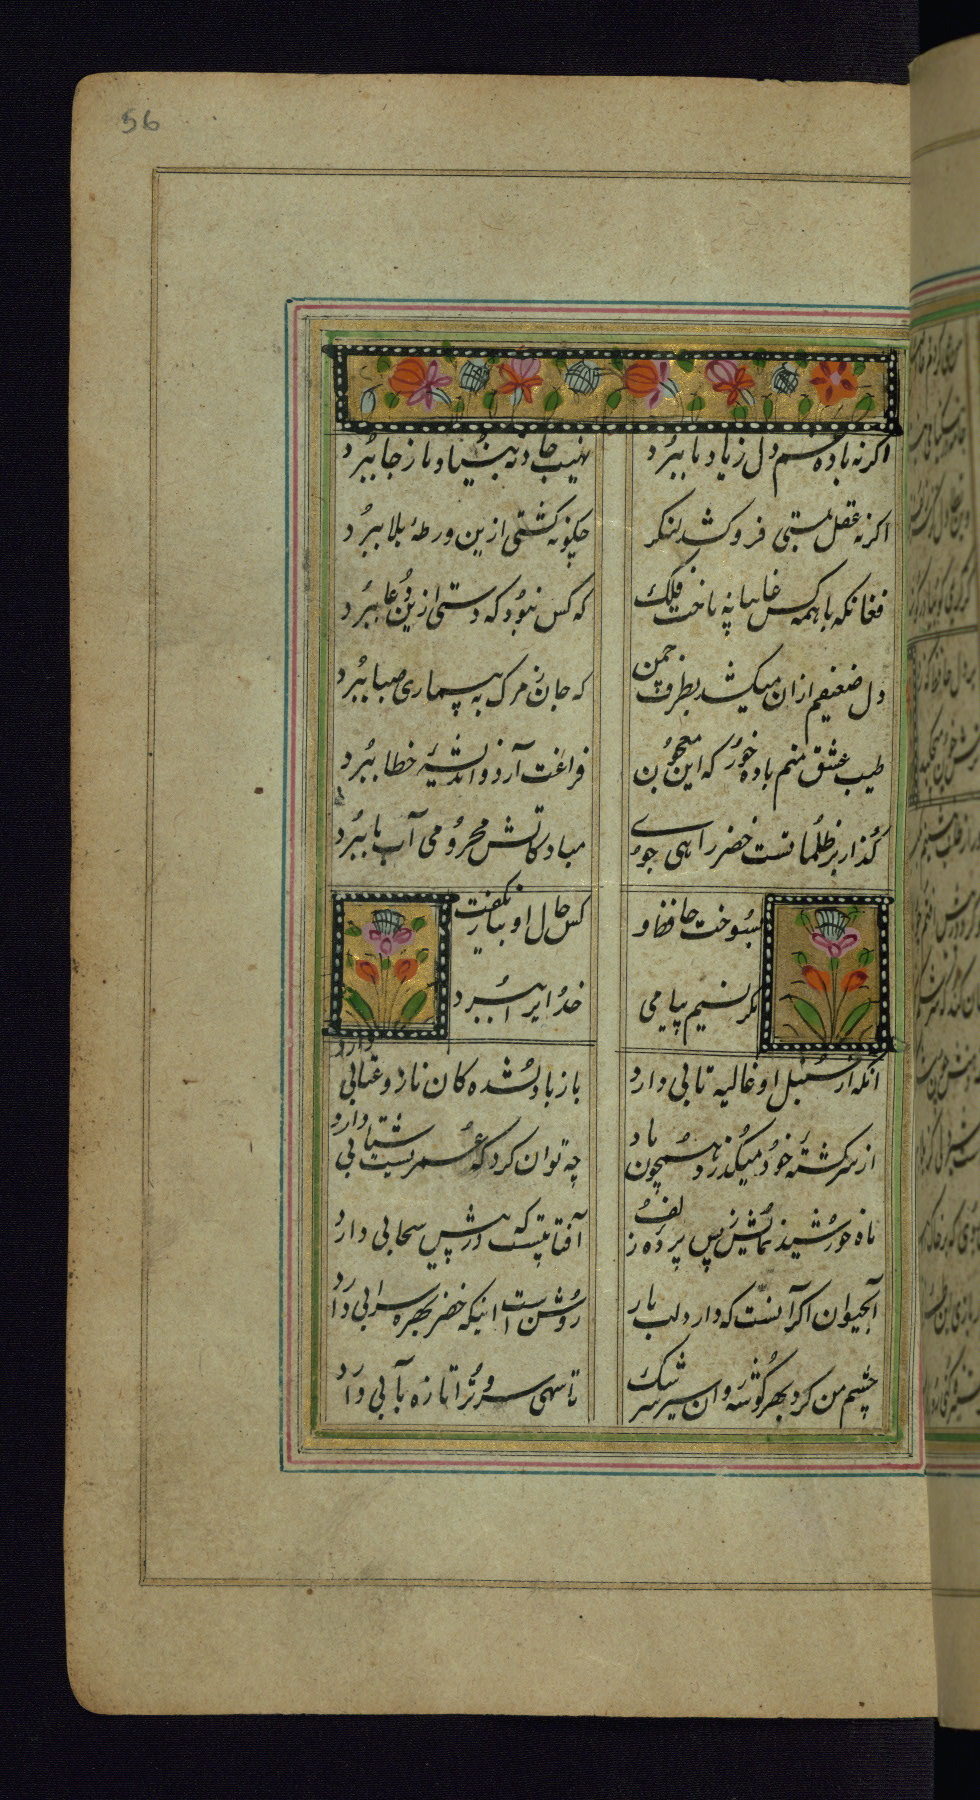 56
اگر نه باده غم دل زیاد ما ببرد
نهیب حادثه بنیاد ما ز جا ببرد
اگر نه عقل بمستی فرو کشد لنگر
چگونه کشتی ازین ورطهٔ بلا ببرد
فغانکه با همه کس غایبانه باخت فلک
که کس نبود که دستی ازین دغا ببرد
دل ضعیفم ازان میکشد بطرف چمن
که جان ز مرک به بیماری صبا ببرد
طبیب عشق منم باده خور که این معجون
فراغت آرد و اندیشهٔ خطا ببرد
گذار بر ظلماتست خضر راهی جوی
مباد کاتش محرومی آب ما ببرد
بسوخت حافظ و
کس حال او بیار نگفت
مگر نسیم پیامی
خدایرا ببرد
انکه از سنبل او غالیه تابی دارد
باز با دلشده کان ناز و عتابی دارد
از سر کشتهٔ خود میگذرد همچون باد
چه توان کرد که عمرست شتابی دارد
ماه خورشید نمایش ز پس پرده زلف
آفتابیست که در پیش سحابی دارد
آبحیوان اگر آنست که دارد لب یار
روشن است اینکه خضر بهره سرابی دارد
چشم من کرد بهر گوشه روان سیل سرشک
تا سهی سرو ترا تازه بآبی دارد